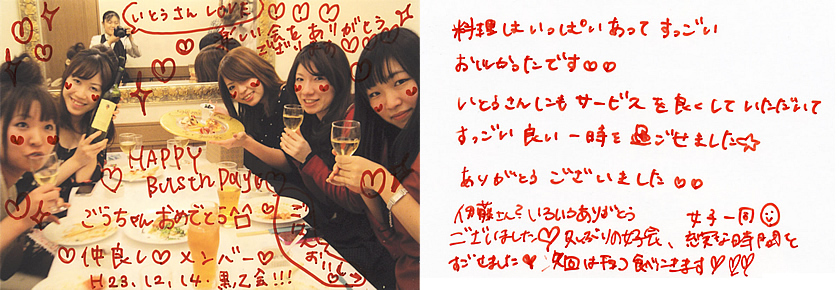 いとうさん LOVE
楽しい会をありがとう
ございます
HAPPY
Birsth Day
ごうちゃんおめでとう
♡仲良し♡メンバー♡
H23.12.14.黒乙会!!!
料理もいっぱいあって すっごい
おいしかったです♡♡
いとうさんにも サービスを良くしていただいて
すっごい良い一時を過ごせました☆
ありがとうございました♡♡
伊藤さん?いろいろありがとう 女子一同
ございました♡久しぶりの女子会、楽しい時間を
すごせました♥次回は 食べにきます♡♡♡